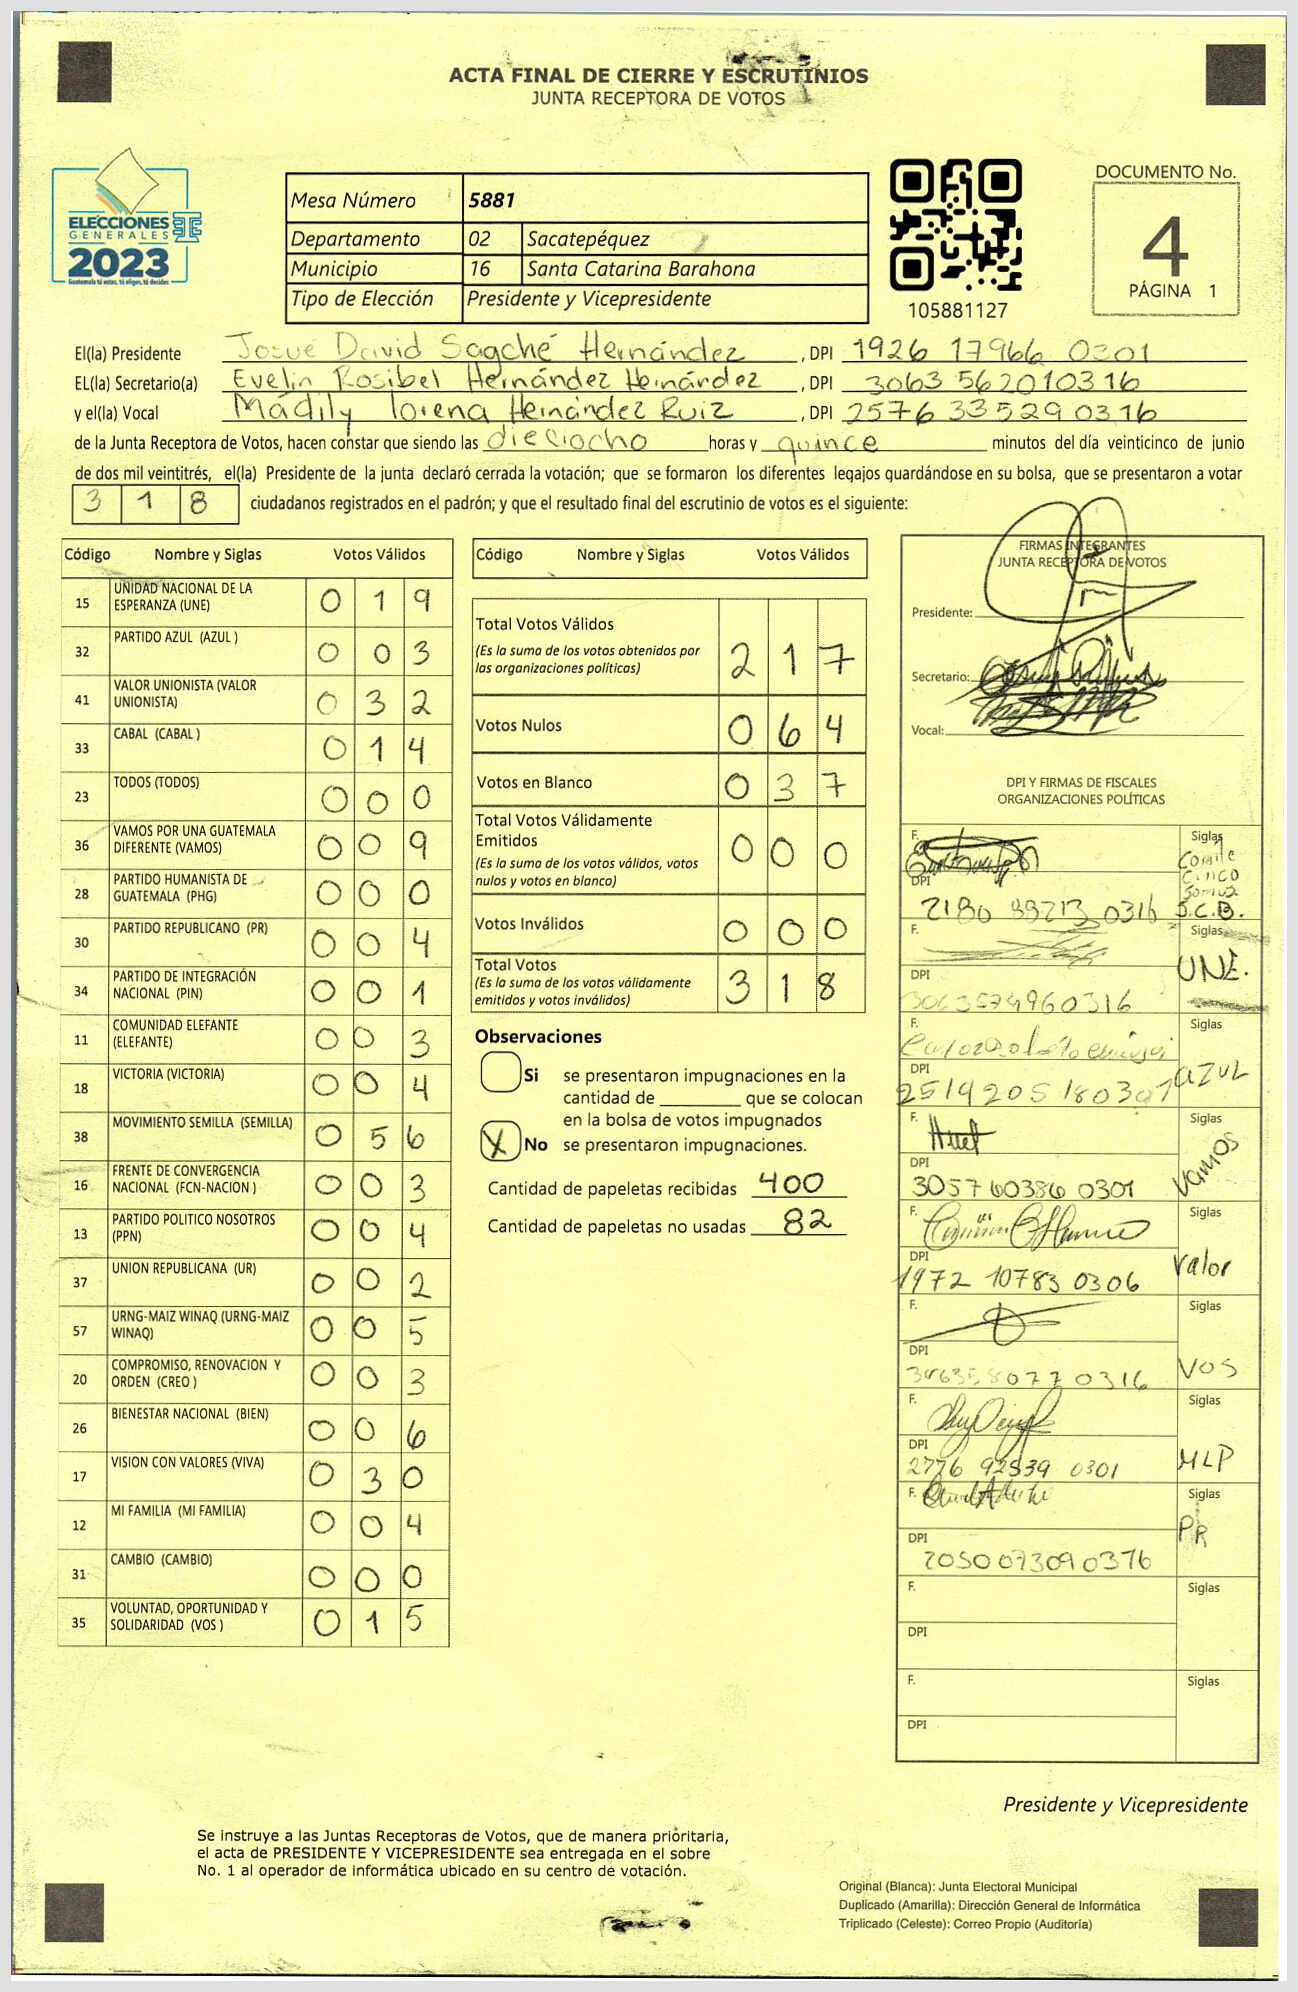 ACTA FINAL DE CIERRE Y ESCRUTINIOS
JUNTA RECEPTORA DE VOTOS
ELECCIONES
GENERALES
2023
Guatemala tú votas, tú eliges, tú decides
Mesa Número 5881
Departamento 02 Sacatepéquez
Municipio 16 Santa Catarina Barahona
Tipo de Elección Presidente y Vicepresidente
105881127
DOCUMENTO No.
4
PÁGINA 1
El(la) Presidente Josué David Sagché Hernández, DPI 1926 17966 0301
EL(la) Secretario(a) Evelin Rosibel Hernández Hernández, DPI 3063 562010316
y el(la) Vocal Mádily lorena Hernández Ruiz, DPI 2576 33529 0316
de la Junta Receptora de Votos, hacen constar que siendo las dieciocho horas y quince minutos del día veinticinco de junio
de dos mil veintitrés, el(la) Presidente de la junta declaró cerrada la votación; que se formaron los diferentes legajos guardándose en su bolsa, que se presentaron a votar
3 1 8 ciudadanos registrados en el padrón; y que el resultado final del escrutinio de votos es el siguiente:
Código Nombre y Siglas Votos Válidos
15 UNIDAD NACIONAL DE LA
ESPERANZA (UNE) 0 1 9
32 PARTIDO AZUL (AZUL ) 0 0 3
41 VALOR UNIONISTA (VALOR
UNIONISTA) 0 3 2
33 CABAL (CABAL ) 0 1 4
23 TODOS (TODOS) 0 0 0
36 VAMOS POR UNA GUATEMALA
DIFERENTE (VAMOS) 0 0 9
28 PARTIDO HUMANISTA DE
GUATEMALA (PHG) 0 0 0
30 PARTIDO REPUBLICANO (PR) 0 0 4
34 PARTIDO DE INTEGRACIÓN
NACIONAL (PIN) 0 0 1
11 COMUNIDAD ELEFANTE
(ELEFANTE) 0 0 3
18 VICTORIA (VICTORIA) 0 0 4
38 MOVIMIENTO SEMILLA (SEMILLA) 0 5 6
16 FRENTE DE CONVERGENCIA
NACIONAL (FCN-NACION ) 0 0 3
13 PARTIDO POLITICO NOSOTROS
(PPN) 0 0 4
37 UNION REPUBLICANA (UR) 0 0 2
57 URNG-MAIZ WINAQ (URNG-MAIZ
WINAQ) 0 0 5
20 COMPROMISO, RENOVACION Y
ORDEN (CREO ) 0 0 3
26 BIENESTAR NACIONAL (BIEN) 0 0 6
17 VISION CON VALORES (VIVA) 0 3 0
12 MI FAMILIA (MI FAMILIA) 0 0 4
31 CAMBIO (CAMBIO) 0 0 0
35 VOLUNTAD, OPORTUNIDAD Y
SOLIDARIDAD (VOS ) 0 1 5
Código Nombre y Siglas Votos Válidos
Total Votos Válidos
(Es la suma de los votos obtenidos por
las organizaciones políticas) 2 1 7
Votos Nulos 0 6 4
Votos en Blanco 0 3 7
Total Votos Válidamente
Emitidos
(Es la suma de los votos válidos, votos
nulos y votos en blanco) 0 0 0
Votos Inválidos 0 0 0
Total Votos
(Es la suma de los votos válidamente
emitidos y votos inválidos) 3 1 8
Observaciones
Si se presentaron impugnaciones en la
cantidad de ________ que se colocan
en la bolsa de votos impugnados
X No se presentaron impugnaciones.
Cantidad de papeletas recibidas 400
Cantidad de papeletas no usadas 82
FIRMAS INTEGRANTES
JUNTA RECEPTORA DE VOTOS
Presidente:
Secretario:
Vocal:
DPI Y FIRMAS DE FISCALES
ORGANIZACIONES POLÍTICAS
F. Siglas
Comité
Cinco
S.C.B.
DPI
2180 0316
F. Siglas
UNE.
DPI
3063574960316
F. Siglas
AZUL
DPI
F. Huet Siglas
vamos
DPI
3057 60386 0301
F. Siglas
Valor
DPI
1972 10783 0306
F. Siglas
VOS
DPI
F. Siglas
MLP
DPI
2776 92539 0301
F. Siglas
PR
DPI
F. Siglas
DPI
F. Siglas
DPI
Presidente y Vicepresidente
Se instruye a las Juntas Receptoras de Votos, que de manera prioritaria,
el acta de PRESIDENTE Y VICEPRESIDENTE sea entregada en el sobre
No. 1 al operador de informática ubicado en su centro de votación.
Original (Blanca): Junta Electoral Municipal
Duplicado (Amarilla): Dirección General de Informática
Triplicado (Celeste): Correo Propio (Auditoría)